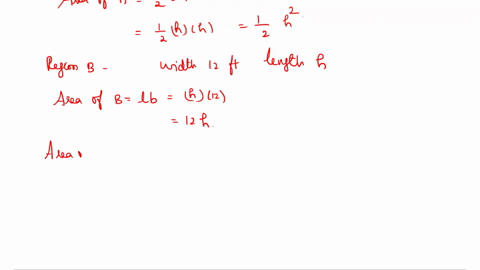 Area of B = 1/2
= 1/2 (h)(h) = 1/2 h²
Region B - width 12 ft length h
Area of B = lb = (h)(12)
= 12 h.
Area